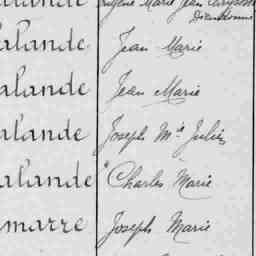 alande Eugène Marie Jean Chrysostome
Dieudonné
alande Jean Marie
alande Jean Marie
alande Joseph Mie Julien
alande "Charles Marie
marre Joseph Marie